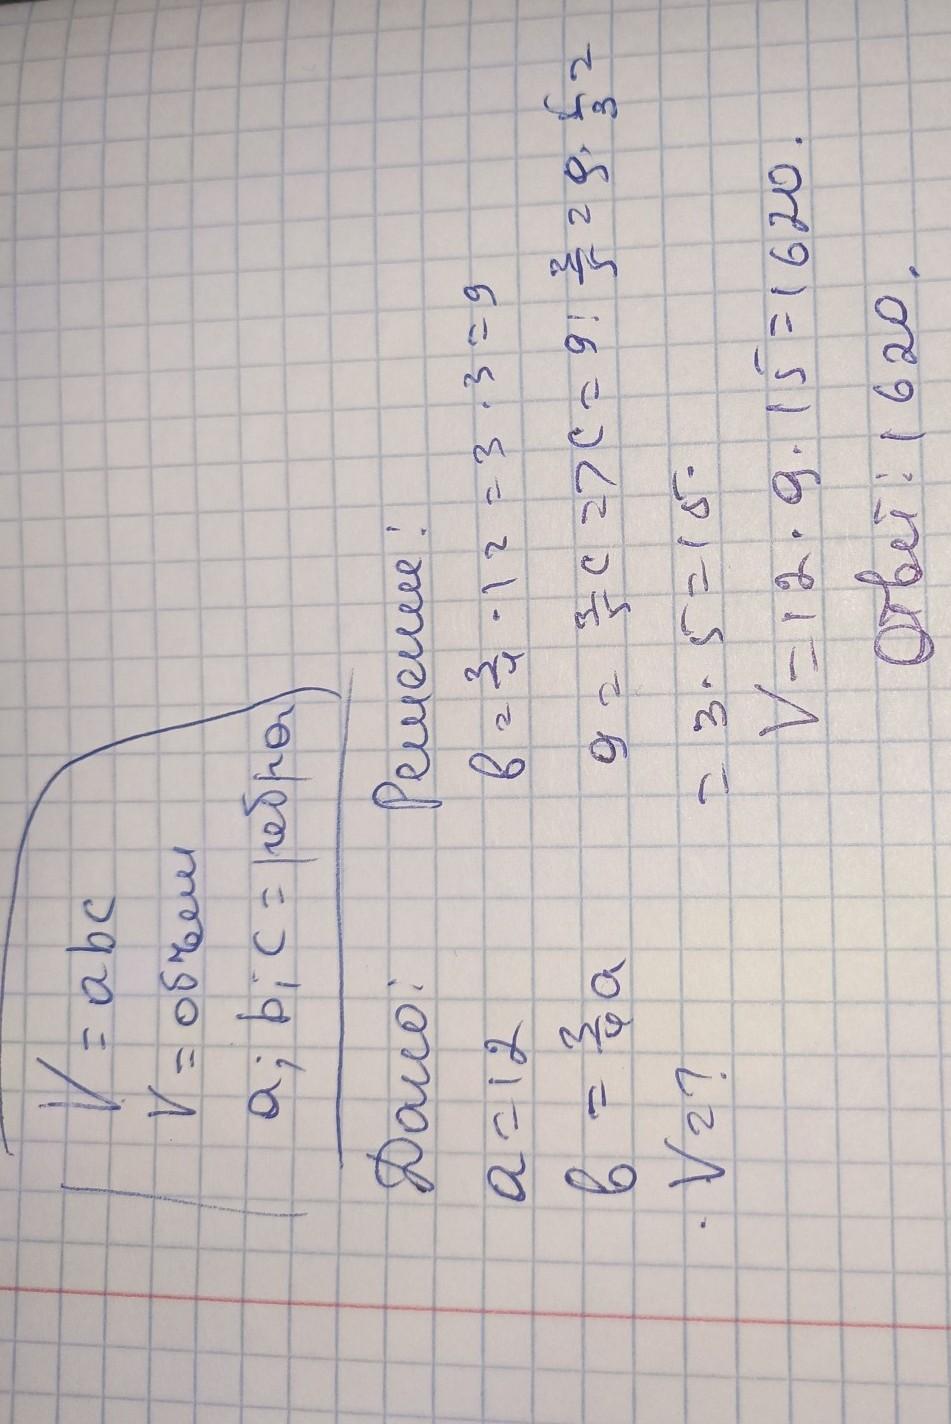 V = abc
V = объем
a; b; c = ребра
Дано:
a = 12
в = 3/4 a
V = ?
Решение:
в = 3/4 · 12 = 3 · 3 = 9
9 = 3/5 c => c = 9 : 3/5 = 9 · 5/3 =
= 3 · 5 = 15.
V = 12 · 9 · 15 = 1620.
Ответ: 1620.